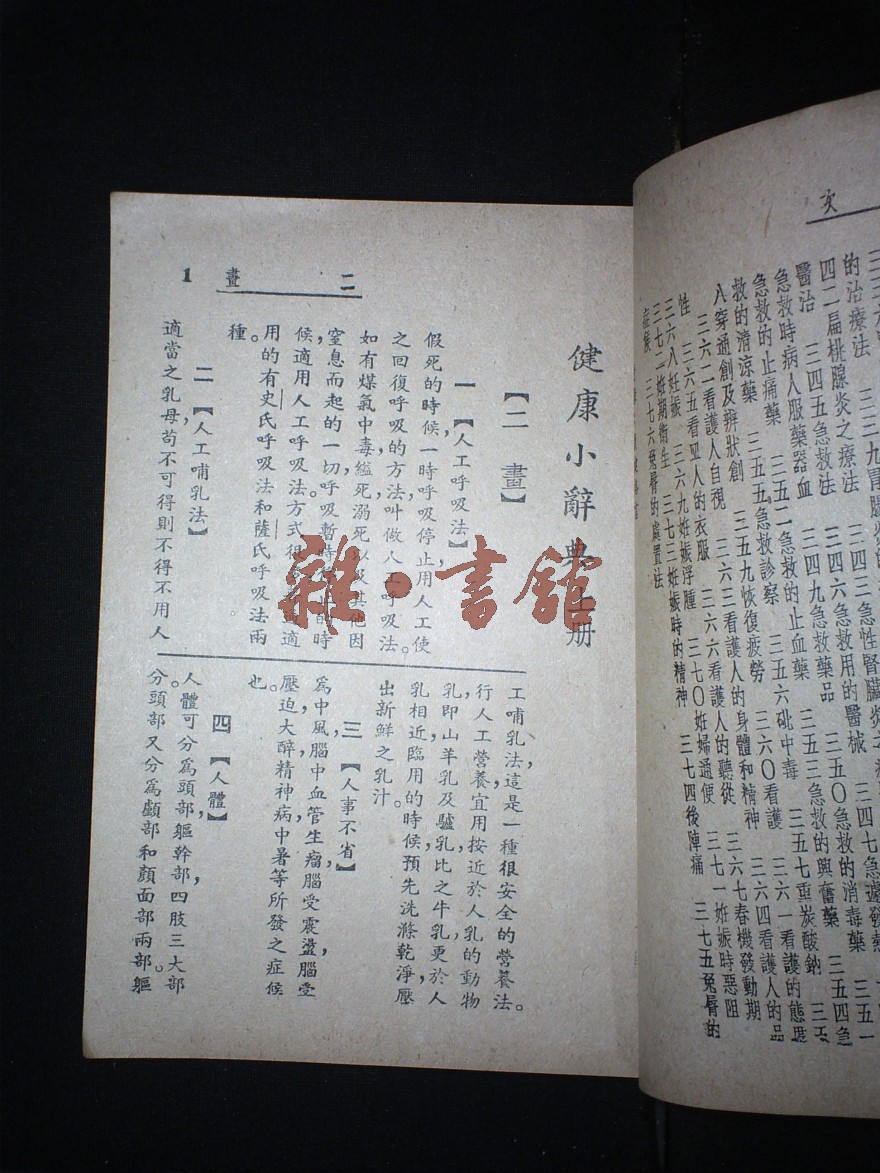 二畫
1
健康小辭典上册
【二畫】
一【人工呼吸法】
假死的時候,一時呼吸停止用人工使
之回復呼吸的方法,叫做人工呼吸法。
如有煤氣中毒縊死溺死以及其他因
窒息而起的一切呼吸暫時停止的時
候,適用人工呼吸法。方式很多普通適
用的有史氏呼吸法和薩氏呼吸法兩
種。
二【人工哺乳法】
適當之乳母苟不可得則不得不用人
工哺乳法,這是一種很安全的營養法。
行人工營養宜用按近於人乳的動物
乳即山羊乳及驢乳比之牛乳更於人
乳相近,臨用的時候,預先洗滌乾淨,壓
出新鮮之乳汁。
三【人事不省】
爲中風,腦中血管生瘤,腦受震盪,腦受
壓迫,大醉,精神病,中暑等所發之症候
也。
四【人體】
人體可分爲頭部,軀幹部,四肢三大部
分。頭部又分爲顱部和顏面部兩部。軀
次
的治療法 三四
四二扁桃腺炎之療法 三四三急性腎臟炎之
醫治 三四五急救法 三四六急救用的醫械 三四七急遽發熱
急救時病人服藥器皿 三四九急救藥品 三五〇急救的消毒藥 三五一
急救的止痛藥 三五二急救的止血藥 三五三急救的興奮藥 三五四急
救的清涼藥 三五五急救診察 三五六砒中毒 三五七重炭酸鈉
八穿通創及辨狀創 三五九恢復疲勞 三六〇看護 三六一看護的態度
三六二看護人自視 三六三看護人的身體和精神 三六四看護人的品
性 三六五看護人的衣服 三六六看護人的聽從 三六七春機發動期
三六八妊娠 三六九妊娠浮腫 三七〇妊婦通便 三七一妊娠時惡阻
三七二妊期衛生 三七三妊娠時的精神 三七四後陣痛 三七五兔脣的
症候 三七六兔脣的處置法
雜·書館